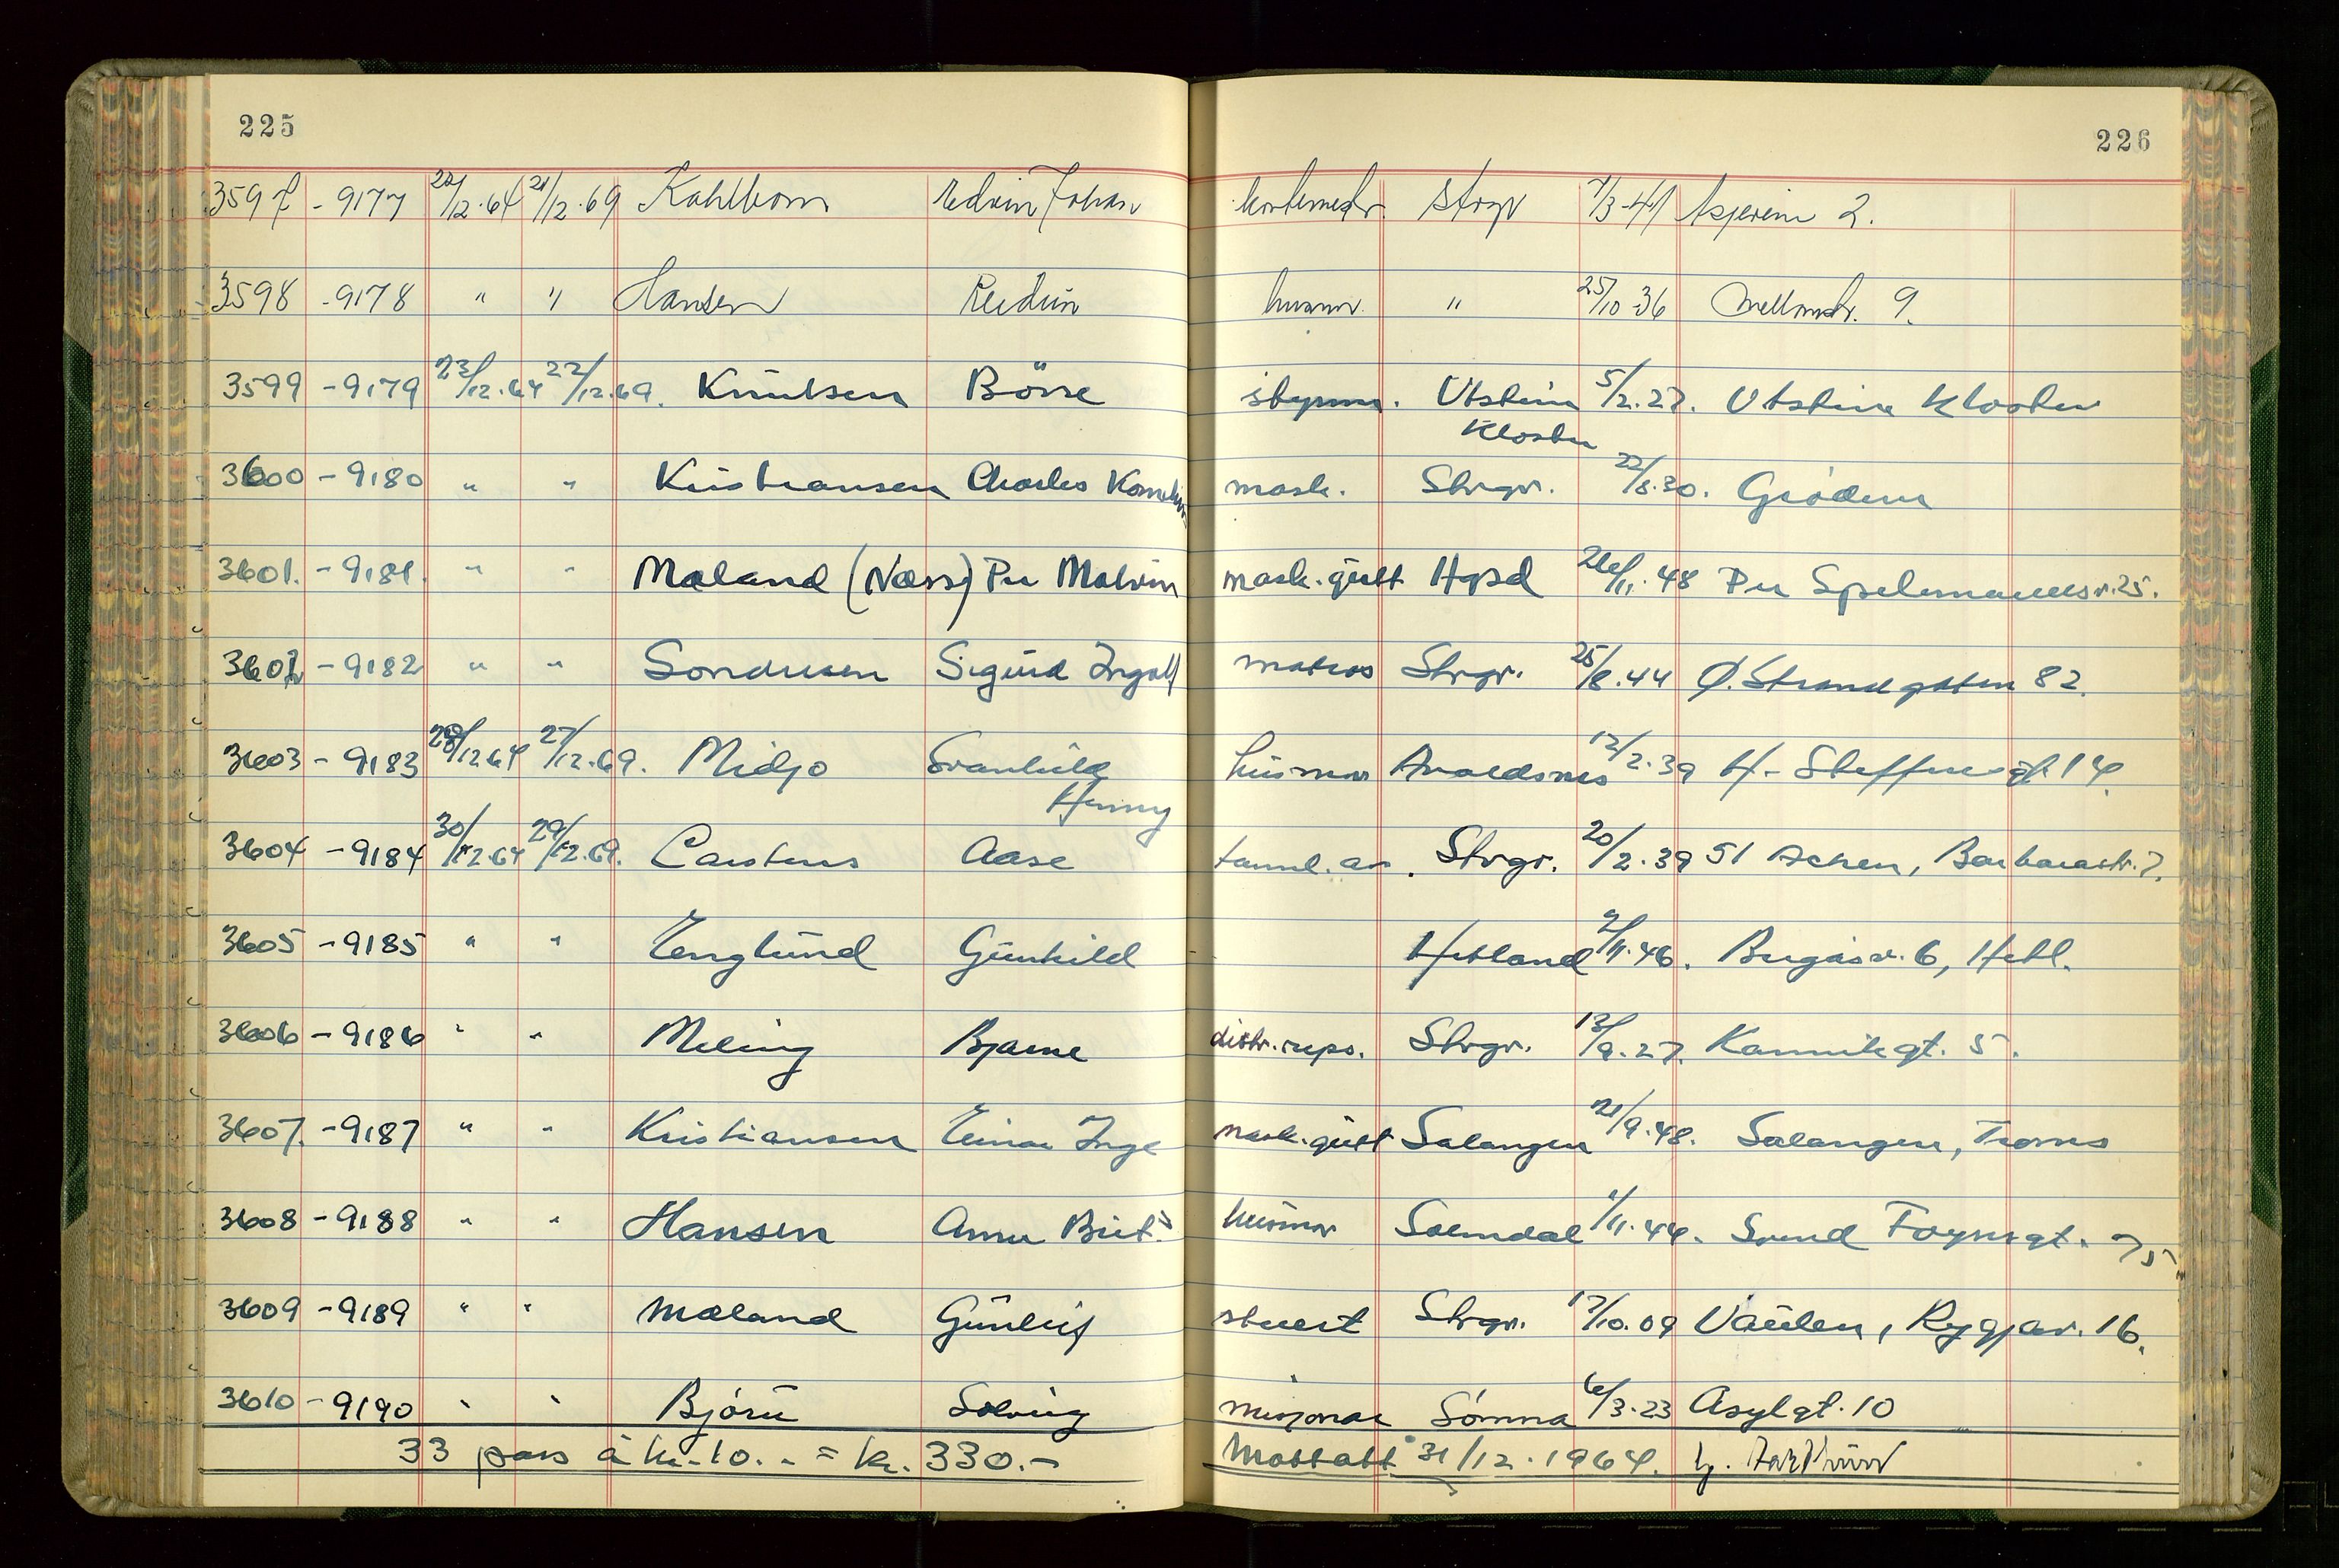 225
226
3597 - 9177 22/12.64 21/12.69 Kahlbom Edvin Johan Strgr 7/3-41 2.
3598 - 9178 " " Hansen Reidun husm. " 25/10 36 Mellomstr. 9.
3599 - 9179 23/12.64 22/12.69. Knutsen Börre styrm. Utstein 5/2.27. Utstein Kloster
Kloster
3600 - 9180 " " Kristiansen Charles Kornelius mask. Strgr. 22/8.30. Grödem
3601. - 9181. " " Mæland (Næss) Per Malvin mask.gutt Hgsd 26/11.48 Per Spelemannsv.25.
3602 - 9182 " " Sondresen Sigurd Ingolf matros Strgr. 25/8.44 Ø. Strandgaten 82.
3603 - 9183 28/12.64 27/12.69. Midjo Svanhild husmor Avaldsnes 12/2.39 H. Steffensgt. 14.
Henny
3604 - 9184 30/12.64 29/12.69. Carstens Aase tannl.as. Strgr. 20/2.39 51 Achen, Barbarastr. 7.
3605 - 9185 " " Englund Gunhild Hetland 9/11.46. 6, Hetl.
3606 - 9186 " " Meling Bjarne distr.repr. Strgr. 13/9.27. Kannikgt. 5.
3607. - 9187 " " Kristiansen Einar Inge mask.gutt Salangen 21/9.48. Salangen, Troms
3608 - 9188 " " Hansen Anne Brit. husmor Soendal 1/11.44. Svend Foynsgt. 75
3609 - 9189 " " Mæland Gunleif stuert Strgr. 17/10.09 Vaulen, Ryggjav. 16.
3610 - 9190 " " Björu Solveig misjonær Sömna 6/3.23 Asylgt. 10
33 pass à kr. 10.- = kr. 330.- Mottatt 31/12.1964.